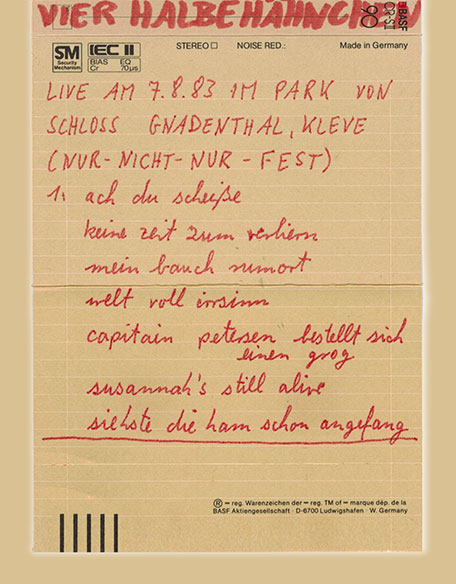 VIER HALBEHÄHNCHEN
BASF
CR-S II
90
SM
Security
Mechanism.
IEC II
BIAS EQ
Cr 70µs
STEREO □ NOISE RED.: Made in Germany
LIVE AM 7.8.83 IM PARK VON
SCHLOSS GNADENTHAL, KLEVE
(NUR-NICHT-NUR-FEST)
1. ach du scheiße
keine zeit zum verliern
mein bauch rumort
welt voll irrsinn
capitain petersen bestellt sich
einen grog
susannah's still alive
siehste die ham schon angefang
® = reg. Warenzeichen der = reg. TM of = marque dép. de la
BASF Aktiengesellschaft · D-6700 Ludwigshafen · W. Germany